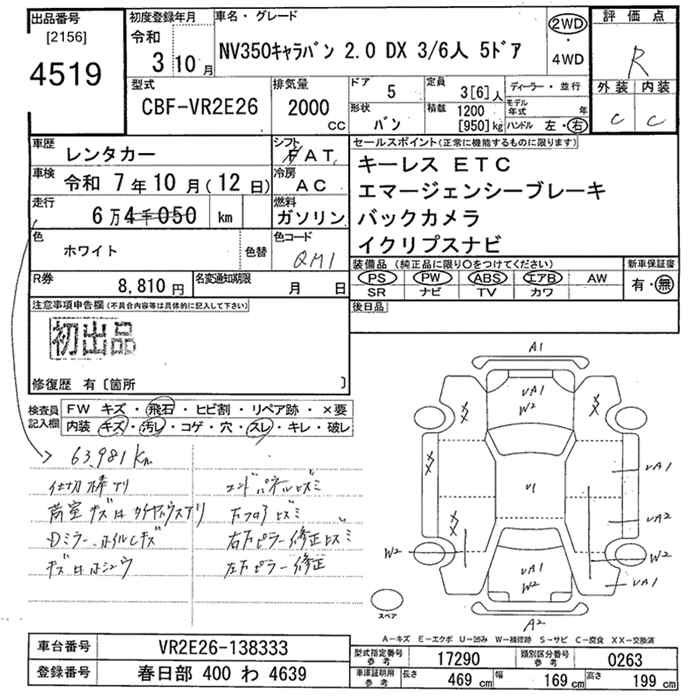 出品番号
[2156]
4519
初度登録年月
令和
3年10月
車名・グレード
NV350キャラバン 2.0 DX 3/6人 5ドア
2WD
・
4WD
評価点
R
外装 内装
C C
型式
CBF-VR2E26
排気量
2000
CC
ドア
5
定員
3[6]人
形状
バン
積載
1200
[950]kg
ディーラー・並行
モデル
年式 年
ハンドル 左・右
車歴
レンタカー
シフト
FAT
車検
令和 7年10月(12日)
冷房
AC
走行
6万4千050 km
燃料
ガソリン
色
ホワイト
色替
色コード
QM1
R券
8,810円
名変通知期限
月 日
セールスポイント(正常に機能するものに限ります)
キーレス ETC
エマージェンシーブレーキ
バックカメラ
イクリプスナビ
装備品(純正品に限り○をつけてください)
PS PW ABS エアB AW
SR ナビ TV カワ
新車保証書
有・無
後日品
注意事項申告欄(不具合内容等は具体的に記入して下さい)
初出品
修復歴 有〔箇所 〕
検査員
記入欄
FW キズ・飛石・ヒビ割・リペア跡・×要
内装 キズ・汚レ・コゲ・穴・スレ・キレ・破レ
63,981km
仕切棒アリ
荷室キズ
Dミラー ホイルCキズ
キズ ホシュウ
エンドパネルヒズミ
右下ピラー修正ヒズミ
左下ピラー修正
A1
UA1
W2
XX
XX
XX
XX
U1
UA1
UA2
W2
W2
UA1
UA1
W2
A2
スペア
A-キズ E-エクボ U-凹み W-補修跡 S-サビ C-腐食 XX-交換済
車台番号
VR2E26-138333
登録番号
春日部 400 わ 4639
型式指定番号
参考
17290
類別区分番号
参考
0263
車庫証明用
参考
長さ
469cm
幅
169cm
高さ
199cm